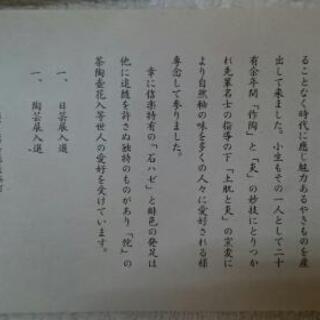 ることなく時代に應じ魅力あるやきものを産
出して来ました。小生もその一人として二十
有余年間「作陶」と「炎」の妙技にとりつか
れ先輩名士の指導の下「土肌と炎」の窯変に
より自然釉の味を多くの人々に愛好される様
専念して参りました。
幸に信楽特有の「石ハゼ」と緋色の発足は
他に追縫を許さぬ独特のものがあり「侘」の
茶陶壺花入等世人の愛好を受けています。
一、日芸展入選
一、陶芸展入選